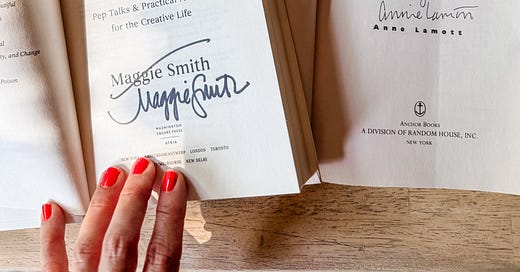 autiful
al
ty, and Change
Poison
Pep Talks & Practical
for the Creative Life
Maggie Smith
Maggie Smith
WASHINGTON
SQUARE PRESS
ATRIA
NEW YORK AMSTERDAM/ANTWERP LONDON TORONTO
MELBOURNE NEW DELHI
Annie Lamott
Anne Lamott
ANCHOR BOOKS
A DIVISION OF RANDOM HOUSE, INC.
NEW YORK